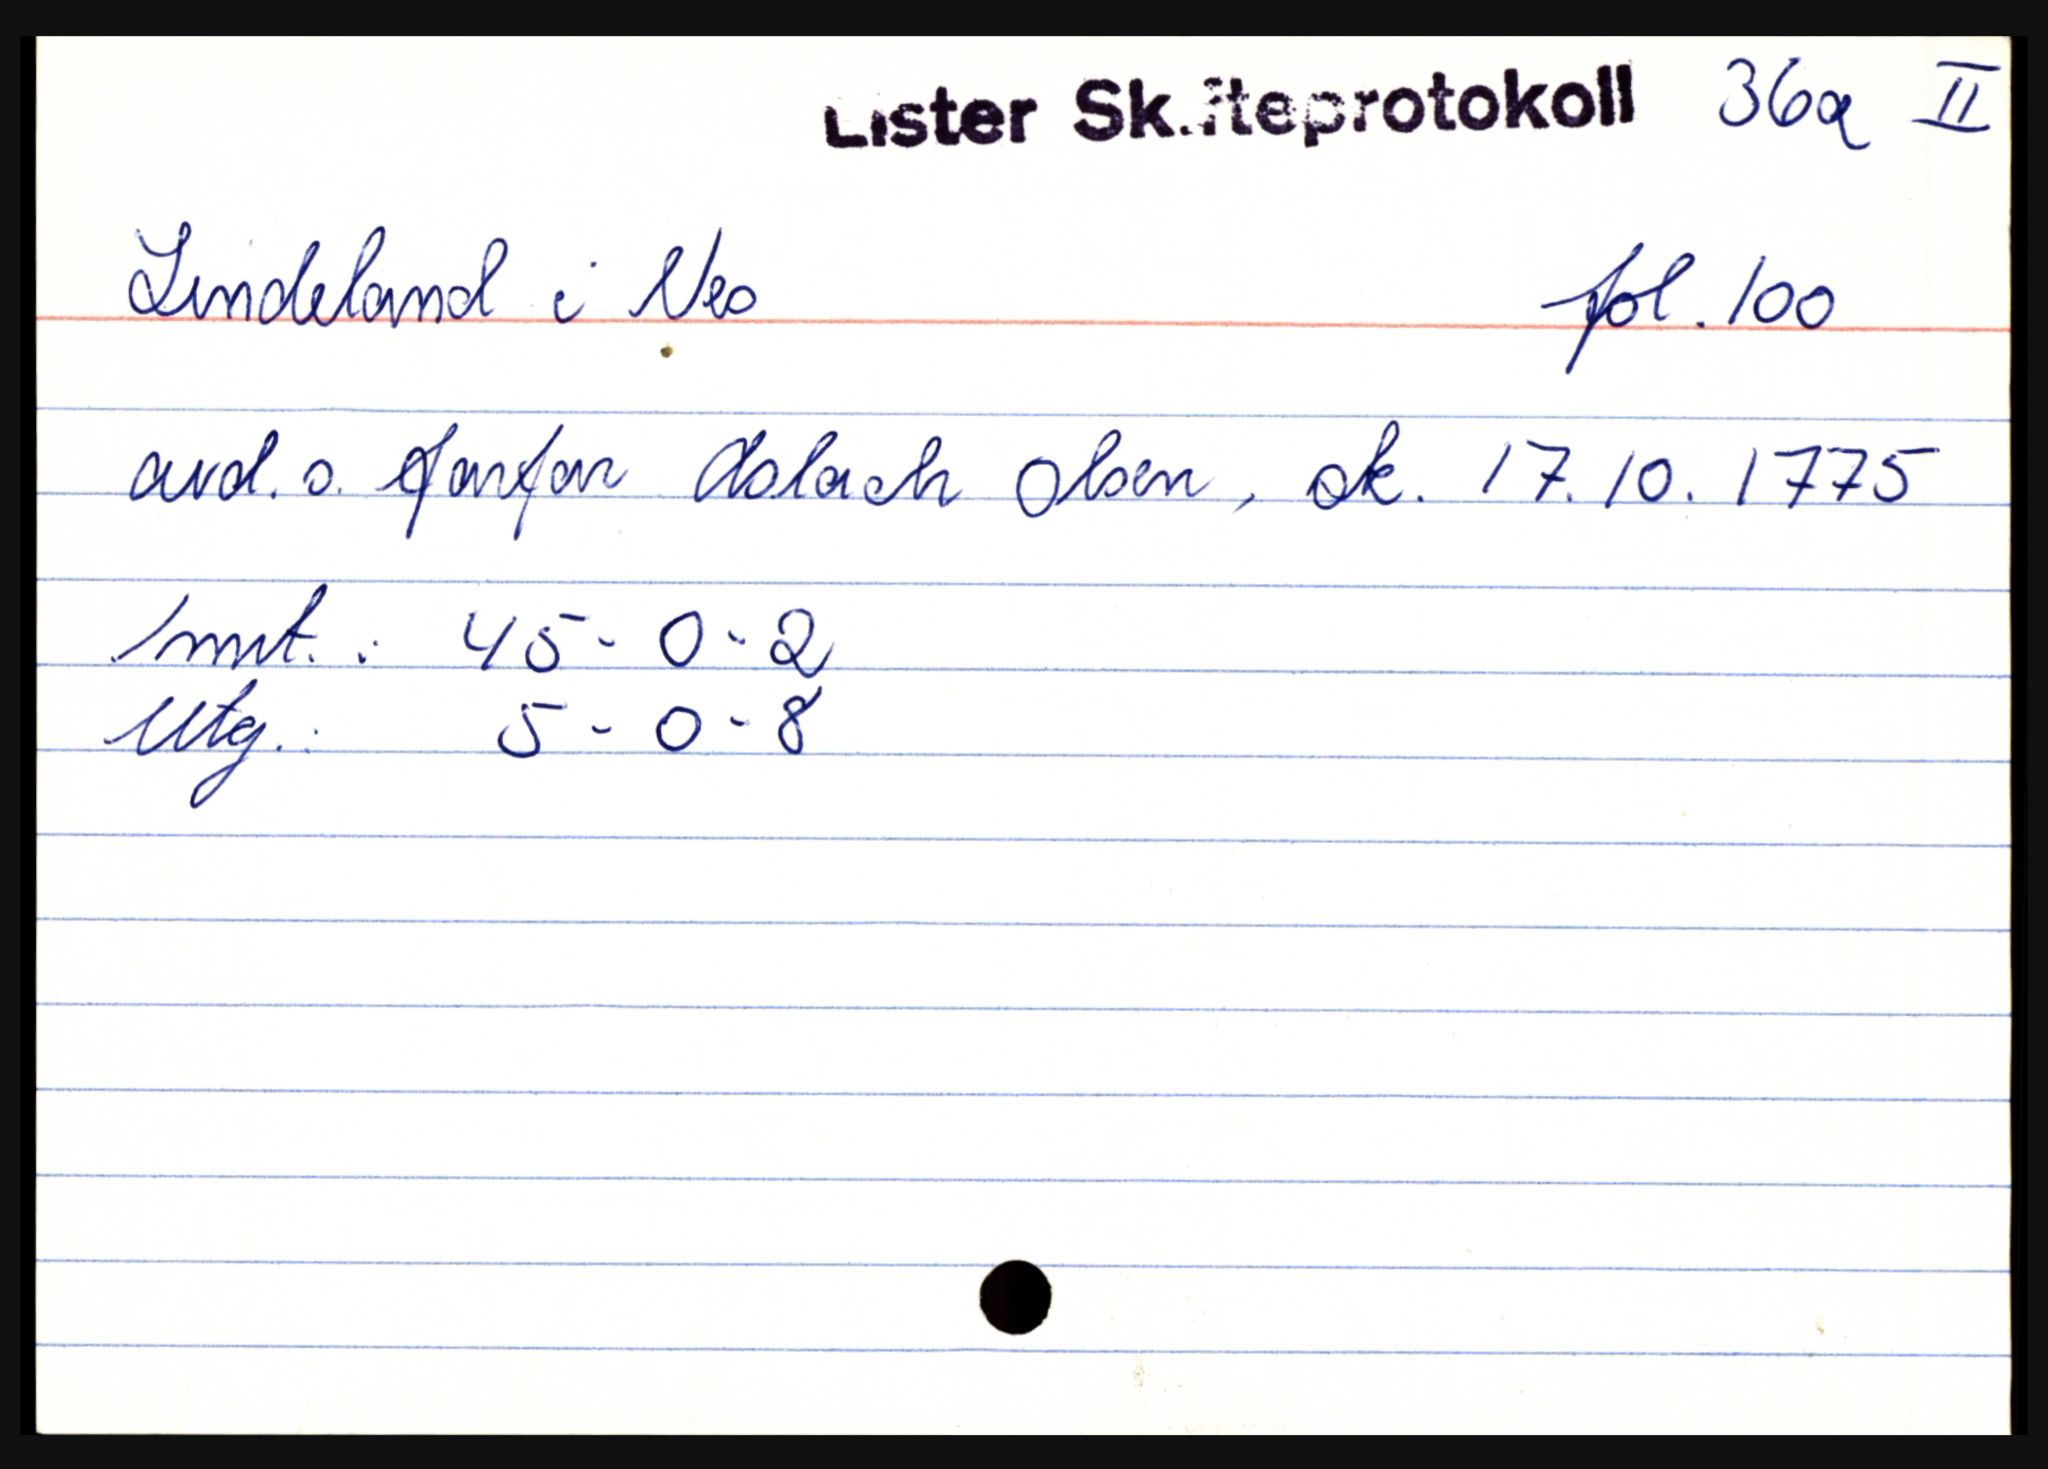 Lister Skifteprotokoll 36a II
Lindeland i Nes fol. 100
avd. s. farfar Aslach Olsen, sk. 17.10.1775
Innt.: 45-0-2
Utg.: 5-0-8